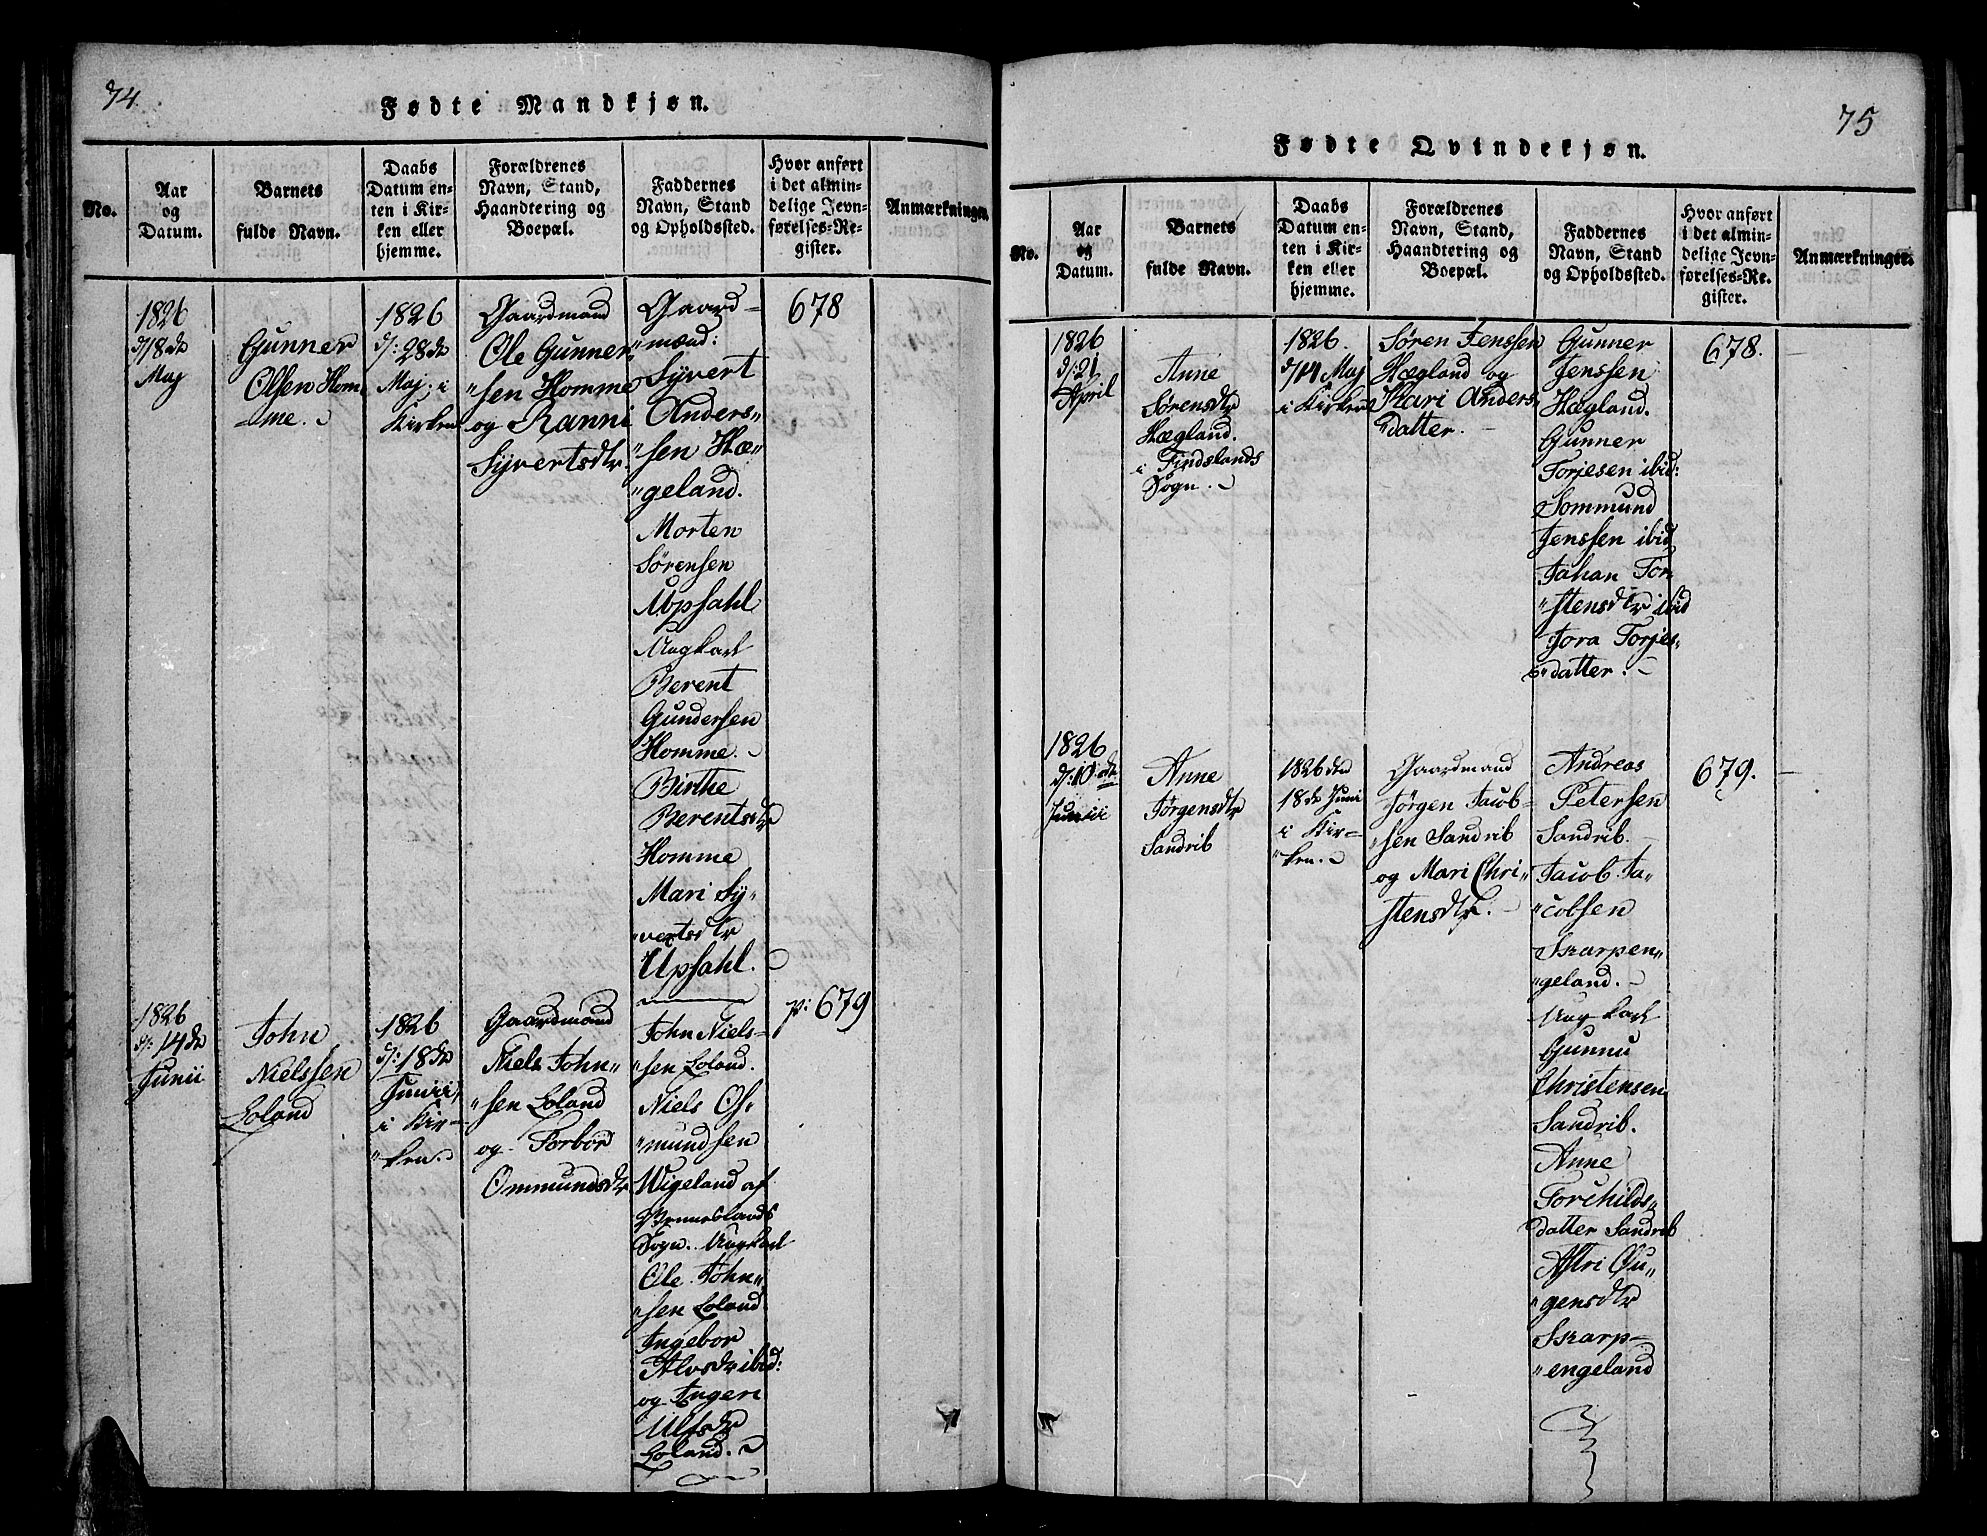 74.
Fødte Mandkjøn.
No.
Aar
og
Datum.
Barnets
fulde Navn.
Daabs
Datum en-
ten i Kir-
ken eller
hjemme.
Forældrenes
Navn, Stand,
Haandtering og
Boepæl.
Faddernes
Navn, Stand
og Opholdssted.
Hvor anført
i det almin-
delige Jevn-
førelses-Re-
gister.
Anmærkninger.
1826
d/18de
Maj
Gunner
Olsen Hom
me.
1826
d/: 28de
Maj. i
Kirken
Gaardmand
Ole Gunner
"sen Homme
og Ranni
Syvertsdtr.
Gaard=
"mænd:
Syvert
Anders"
"sen Hæ"
"geland.
Morten
Sørensen
Upsahl
Ungkarl
Berent
Gundersen
Homme.
Birthe
Berentsdtr
Homme
Mari Sy"
"vertsdtr
Upsahl.
678
1826
d/: 14de
Junii
John
Nielssen
Loland
1826
d/: 18de
Junii,
i Kir-
"ken.
Gaardmand
Niels John"
"sen Loland
og Torbor
Ommundsdtr
John Niels-
"sen Loland.
Niels Os-
"mundsen
Wigeland af
Wenneslands
Sogn. Ungkarl
Ole John"
"sen Loland
Ingebor
Alvsdtr ibid:
og Ingeri
Ulfsdtr
Loland.
p: 679
75
Fødte Qvindekjøn.
No.
Aar
og
Datum.
Barnets
fulde Navn.
Daabs
Datum en-
ten i Kir-
ken eller
hjemme.
Forældrenes
Navn, Stand,
Haandtering og
Boepæl.
Faddernes
Navn, Stand
og Opholdssted.
Hvor anført
i det almin-
delige Jevn-
førelses-Re-
gister.
Anmærkninger.
1826
d/: 21
April
Anne
Sørensdtr
Hægland.
i Findslands
Sogn.
1826.
d/14 Maj
i Kirken
Søren Jenssen
Hægland og
Kari Anders
"datter.
Gunner
Jenssen
Hægland.
Gunner
Torjesen ibid:
Sommund
Jenssen ibid
Johan Tor-
"stensdtr ibid
Jora Torjes-
"datter.
678.
1826
d/: 10de
Junii
Anne
Jørgensdtr
Sandrib
1826 den
18de Juni
i Kir-
"ken.
Gaardmand
Jørgen Jacob-
"sen Sandrib
og Mari Chri"
"stensdtr.
Andreas
Petersen
Sandrib.
Jacob Ja"
"cobsen
Skarpen"
"geland.
Ungkarl
Gunnu
Christensen
Sandrib.
Anne
Torchilds"
datter Sandrib
Astri Øu"
"gensdtr
Skarp-
"engeland
679.